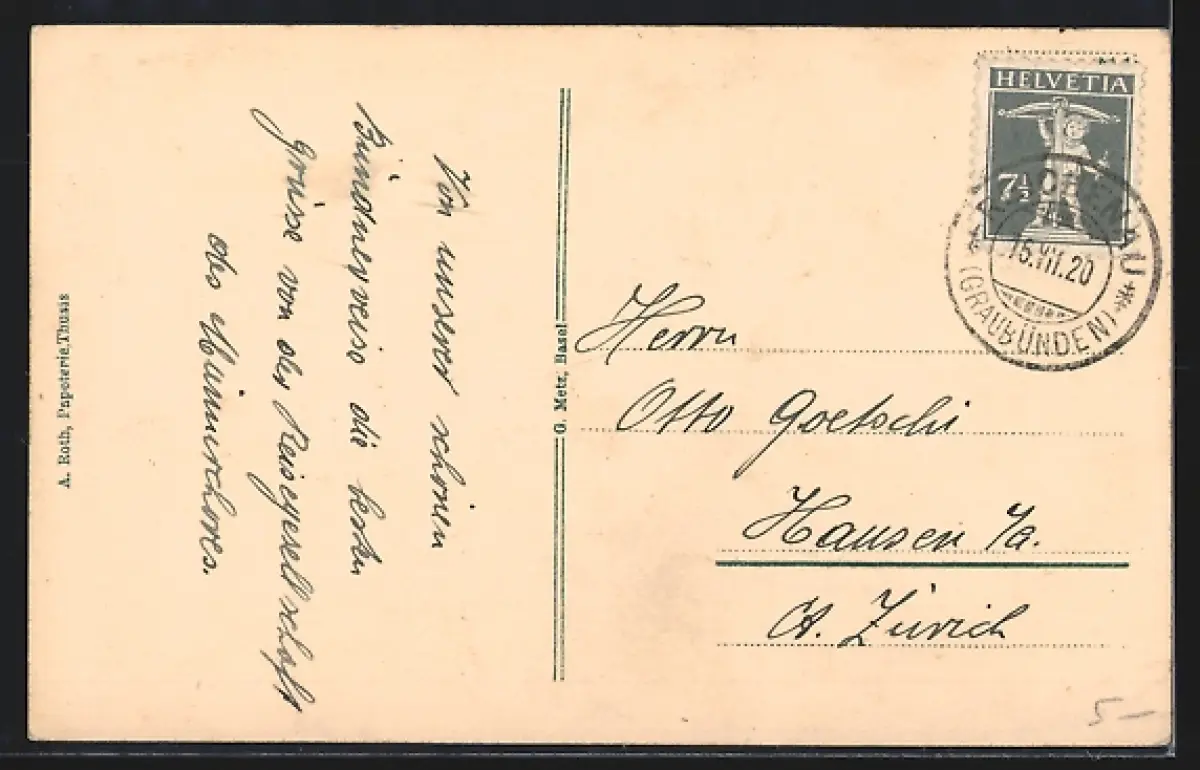 Von unserer schönen
Bündnerreise die besten
Grüsse von der Reisegesellschaft
des Männerchores.
A. Roth, Papeterie, Thusis
G. Metz, Basel
HELVETIA
7½
REICHENAU
15.VII.20
(GRAUBÜNDEN)
Herrn
Otto Goetschi
Hausen a/A.
Ct. Zürich
5-